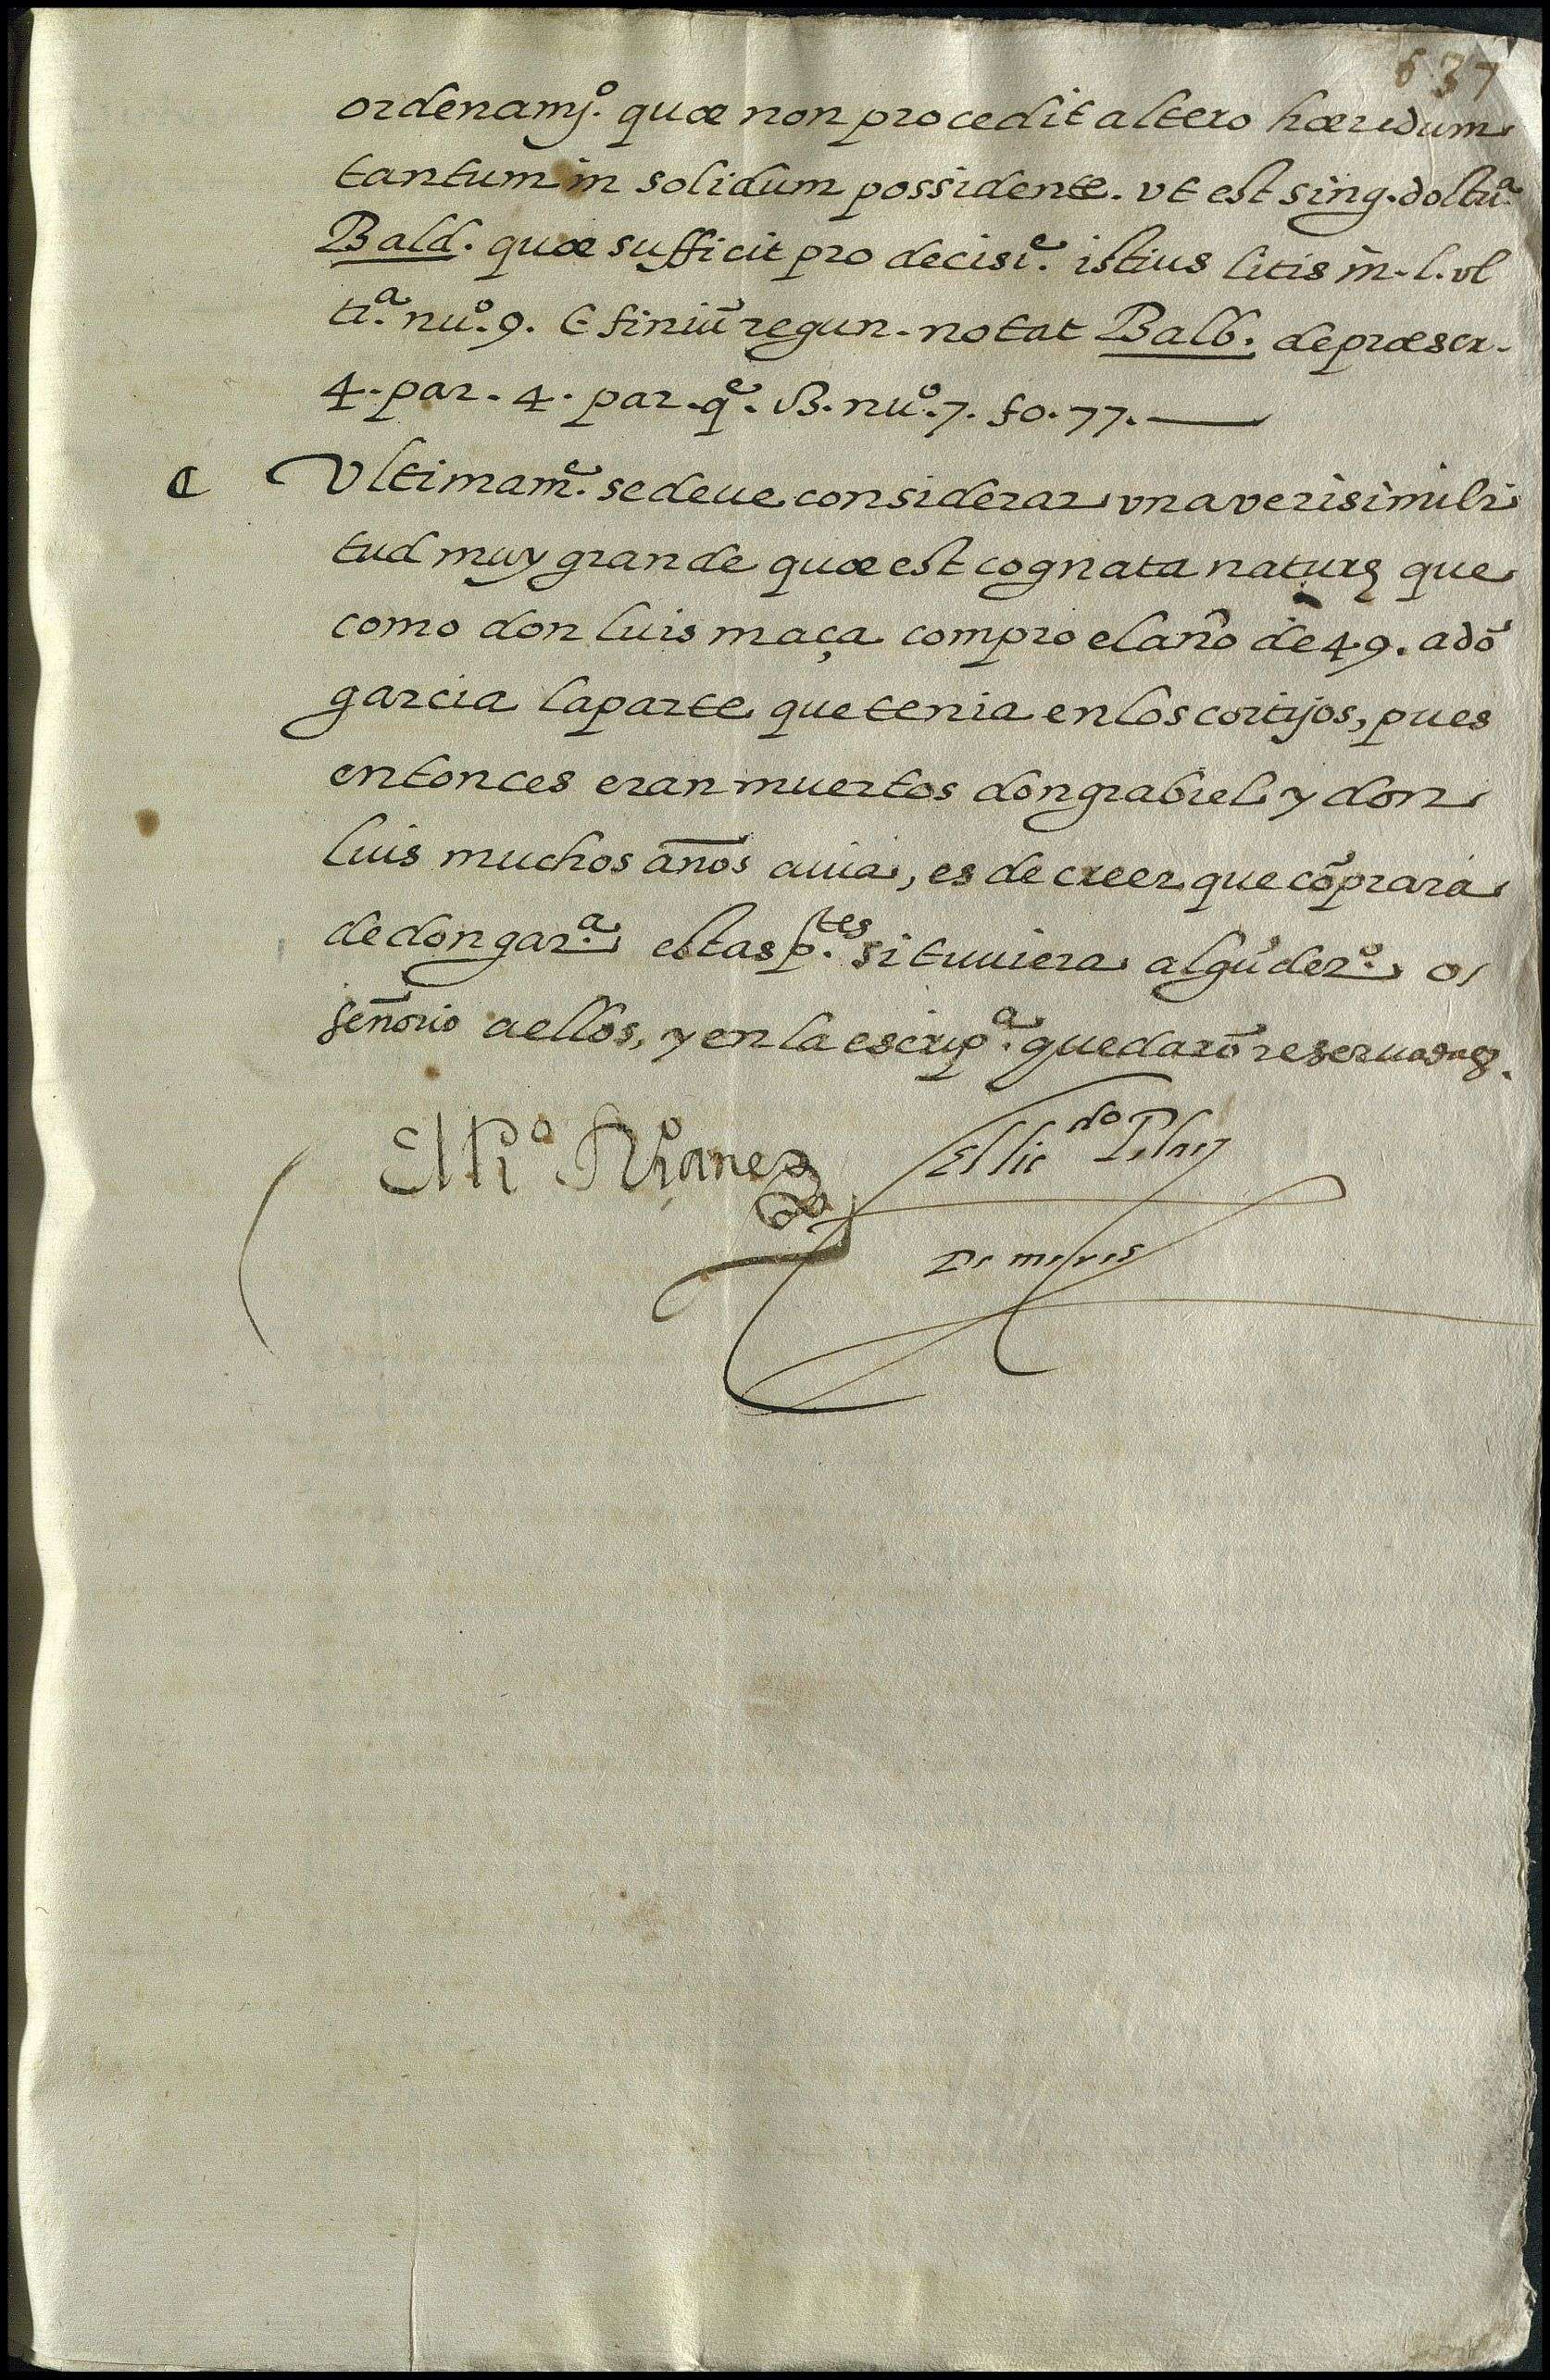 637
ordenamj.º quæ non procedit altero hæredum
tantum in solidum possidente. vt est sing. doctrª
Bald. quæ sufficit pro decisiᵉ. istius litis in. l. vl
tiª. nuº. 9. C finiū regun. notat Balb. de præscr.
4. par. 4. par. qᵉ. 13. nuº. 7. fo. 77.
Vltimamᵉ. se deue considerar vna verisimili
tud muy grande quæ est cognata naturę que
como don luis maça compro el año de 49. a dō
garcia la parte que tenia en los cortijos, pues
entonces eran muertos don grabiel y don
luis muchos años auia, es de creer que cōprara
de don garª estas p.tes si tuuiera algū derº. o
señorio a ellos, y en la escripª. quedarō reseruadas.
El lic.do